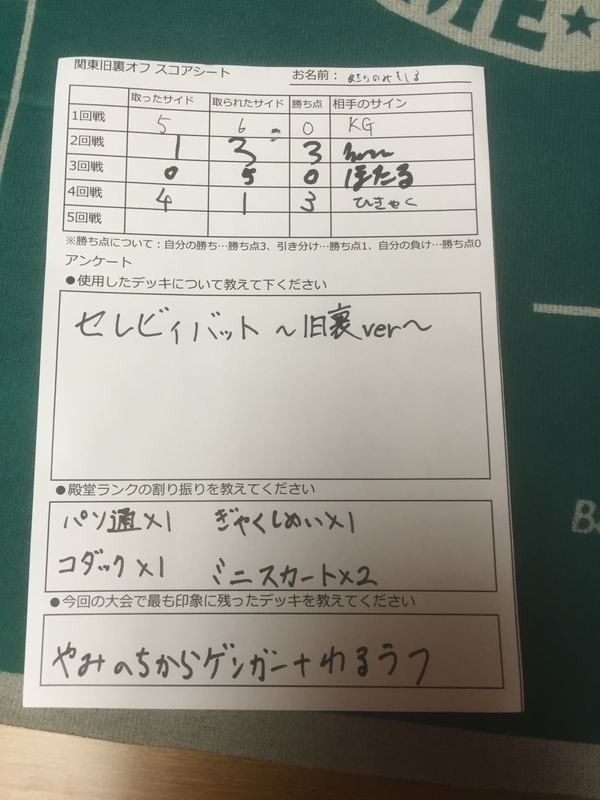 ME★
関東旧裏オフ スコアシート
お名前：
取ったサイド 取られたサイド 勝ち点 相手のサイン
1回戦 5 6 0 KG
2回戦 1 3 3
3回戦 0 5 0 ほたる
4回戦 4 1 3 ひきゃく
5回戦
※勝ち点について：自分の勝ち…勝ち点3、引き分け…勝ち点1、自分の負け…勝ち点0
アンケート
●使用したデッキについて教えて下ください
セレビィバット ～旧裏ver～
●殿堂ランクの割り振りを教えてください
パソ通×1 ぎゃくしめい×1
コダック×1 ミニスカート×2
●今回の大会で最も印象に残ったデッキを教えてください
やみのちからゲンガー+わるうつ